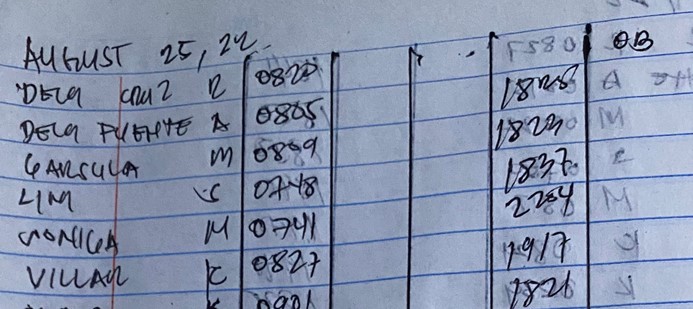 AUGUST 25, 22 OB
DELA CRUZ R 0820 1828
DELA FUENTE A 0805 1823
GARSULA M 0859 1837
LIM S 0748 2204
MONICA M 0741 1917
VILLAR K 0827 1821
K 0901